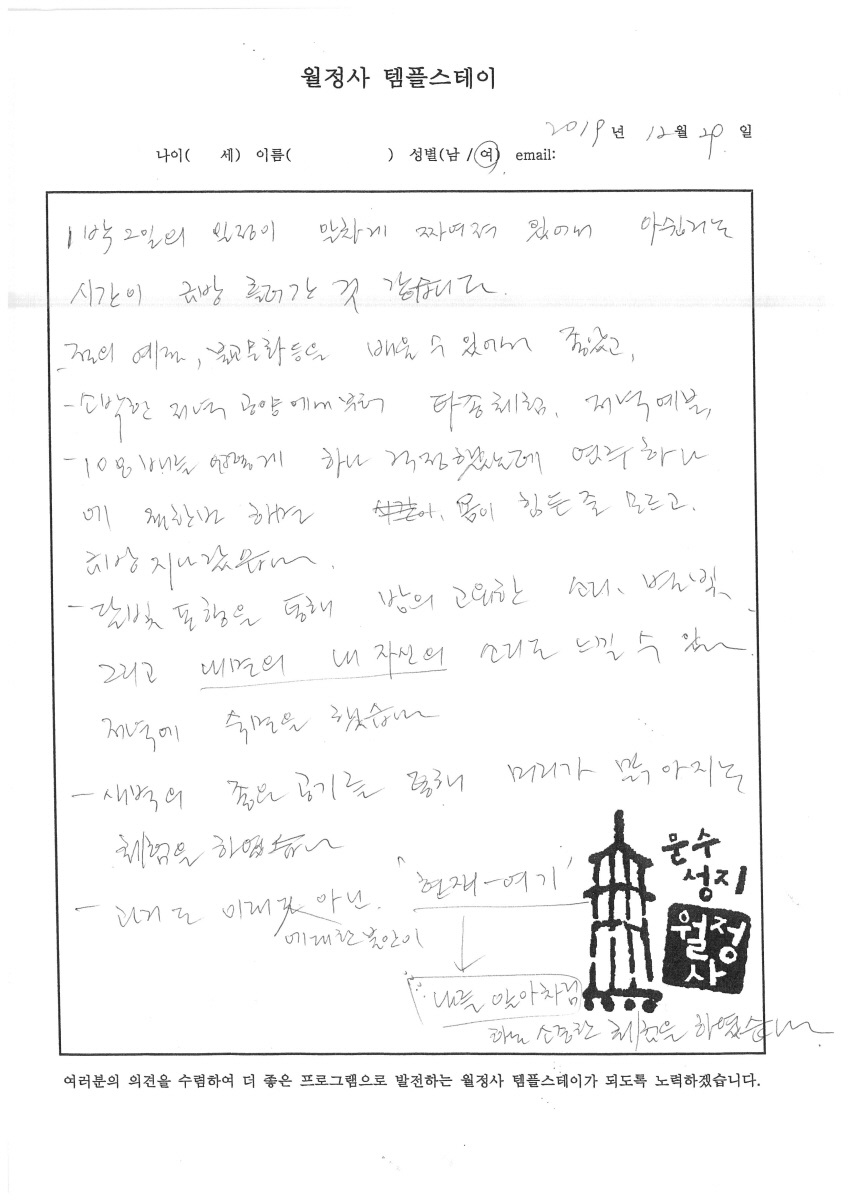 월정사 템플스테이
2019년 12월 29일
나이( 세) 이름( ) 성별(남 / 여) email:
1박 2일의 일정이 알차게 짜여져 있어서 아쉽게는
시간이 금방 흘러간 것 같습니다.
절의 예절, 불교문화등을 배울 수 있어서 좋았고,
- 소박한 저녁 공양에서부터 타종체험, 저녁예불,
- 108배를 어떻게 하나 걱정했는데 염주하나
에 절한번 하면서 몸이 힘든줄 모르고.
금방 지나갔습니다.
- 달빛 포행을 통해 밤의 고요한 소리, 별빛,
그리고 내면의 내 자신의 소리도 느낄 수 있
저녁에 숙면을 했습니다
- 새벽의 좋은 공기를 통해 머리가 맑아지는
체험을 하였습니다
- 과거도 미래 아닌. "현재-여기"
에대한 불안이
나를 알아차림
하는 소중한 체험을 하였습니다
문수
성지
월정
사
여러분의 의견을 수렴하여 더 좋은 프로그램으로 발전하는 월정사 템플스테이가 되도록 노력하겠습니다.